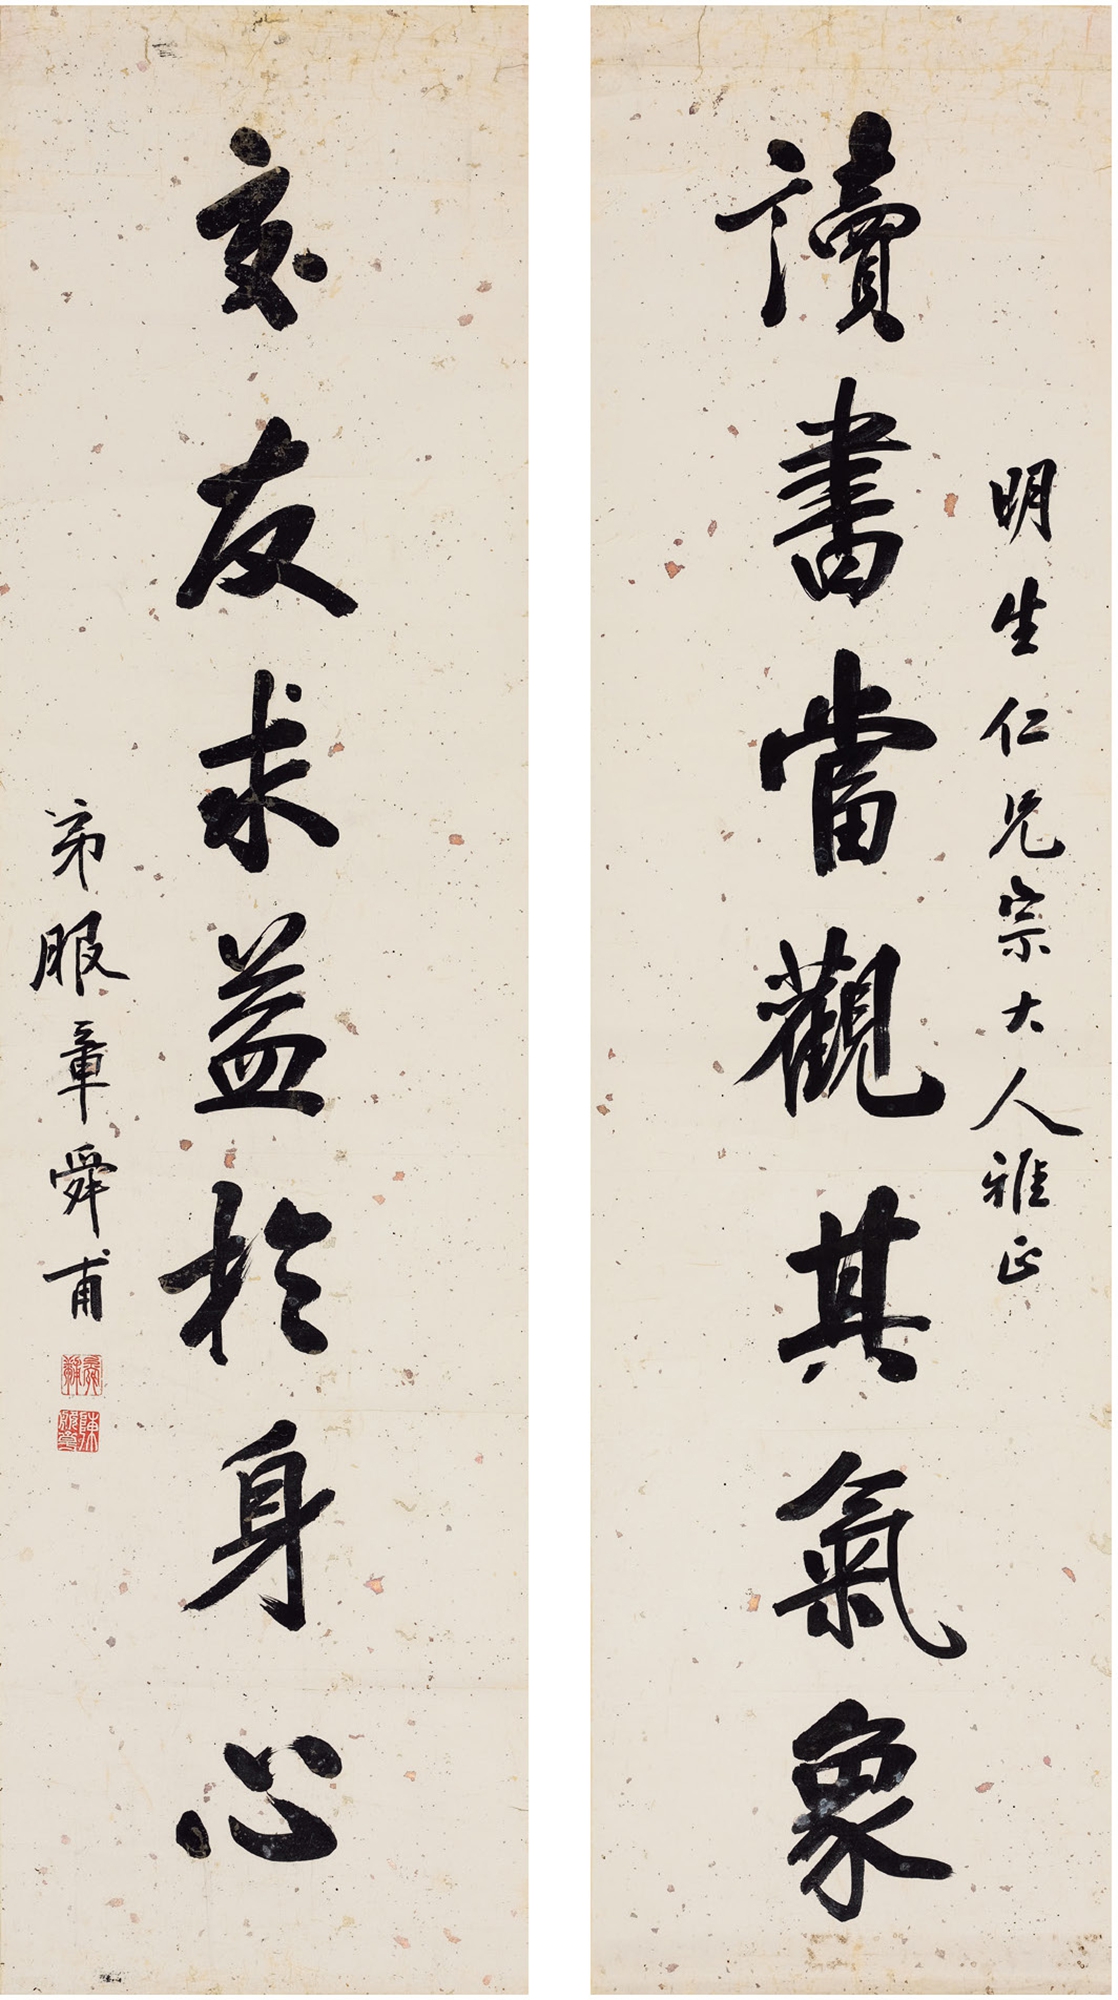 明生仁兄宗大人雅正
讀書當觀其氣象
交友求益於身心
弟服章舜甫